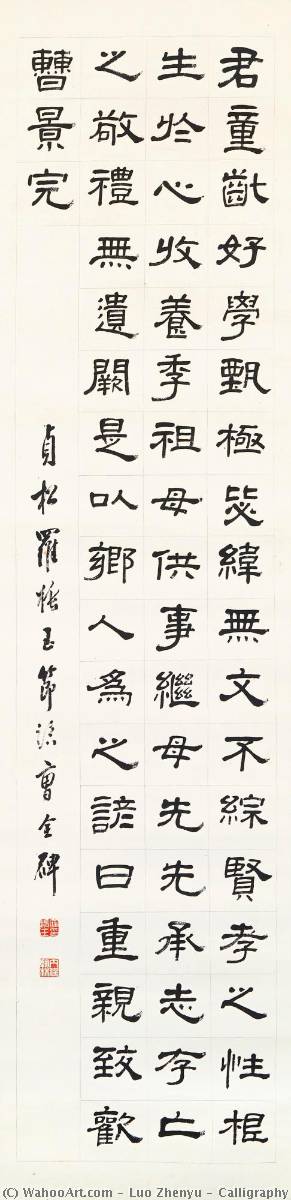 君童齔好學甄極毖緯無文不綜賢孝之性根
生於心收養季祖母供事繼母先先承志存亡
之敬禮無遺闕是以鄉人爲之諺曰重親致歡
曹景完
貞松羅振玉節臨曹全碑
(C) WahooArt.com - Luo Zhenyu - Calligraphy